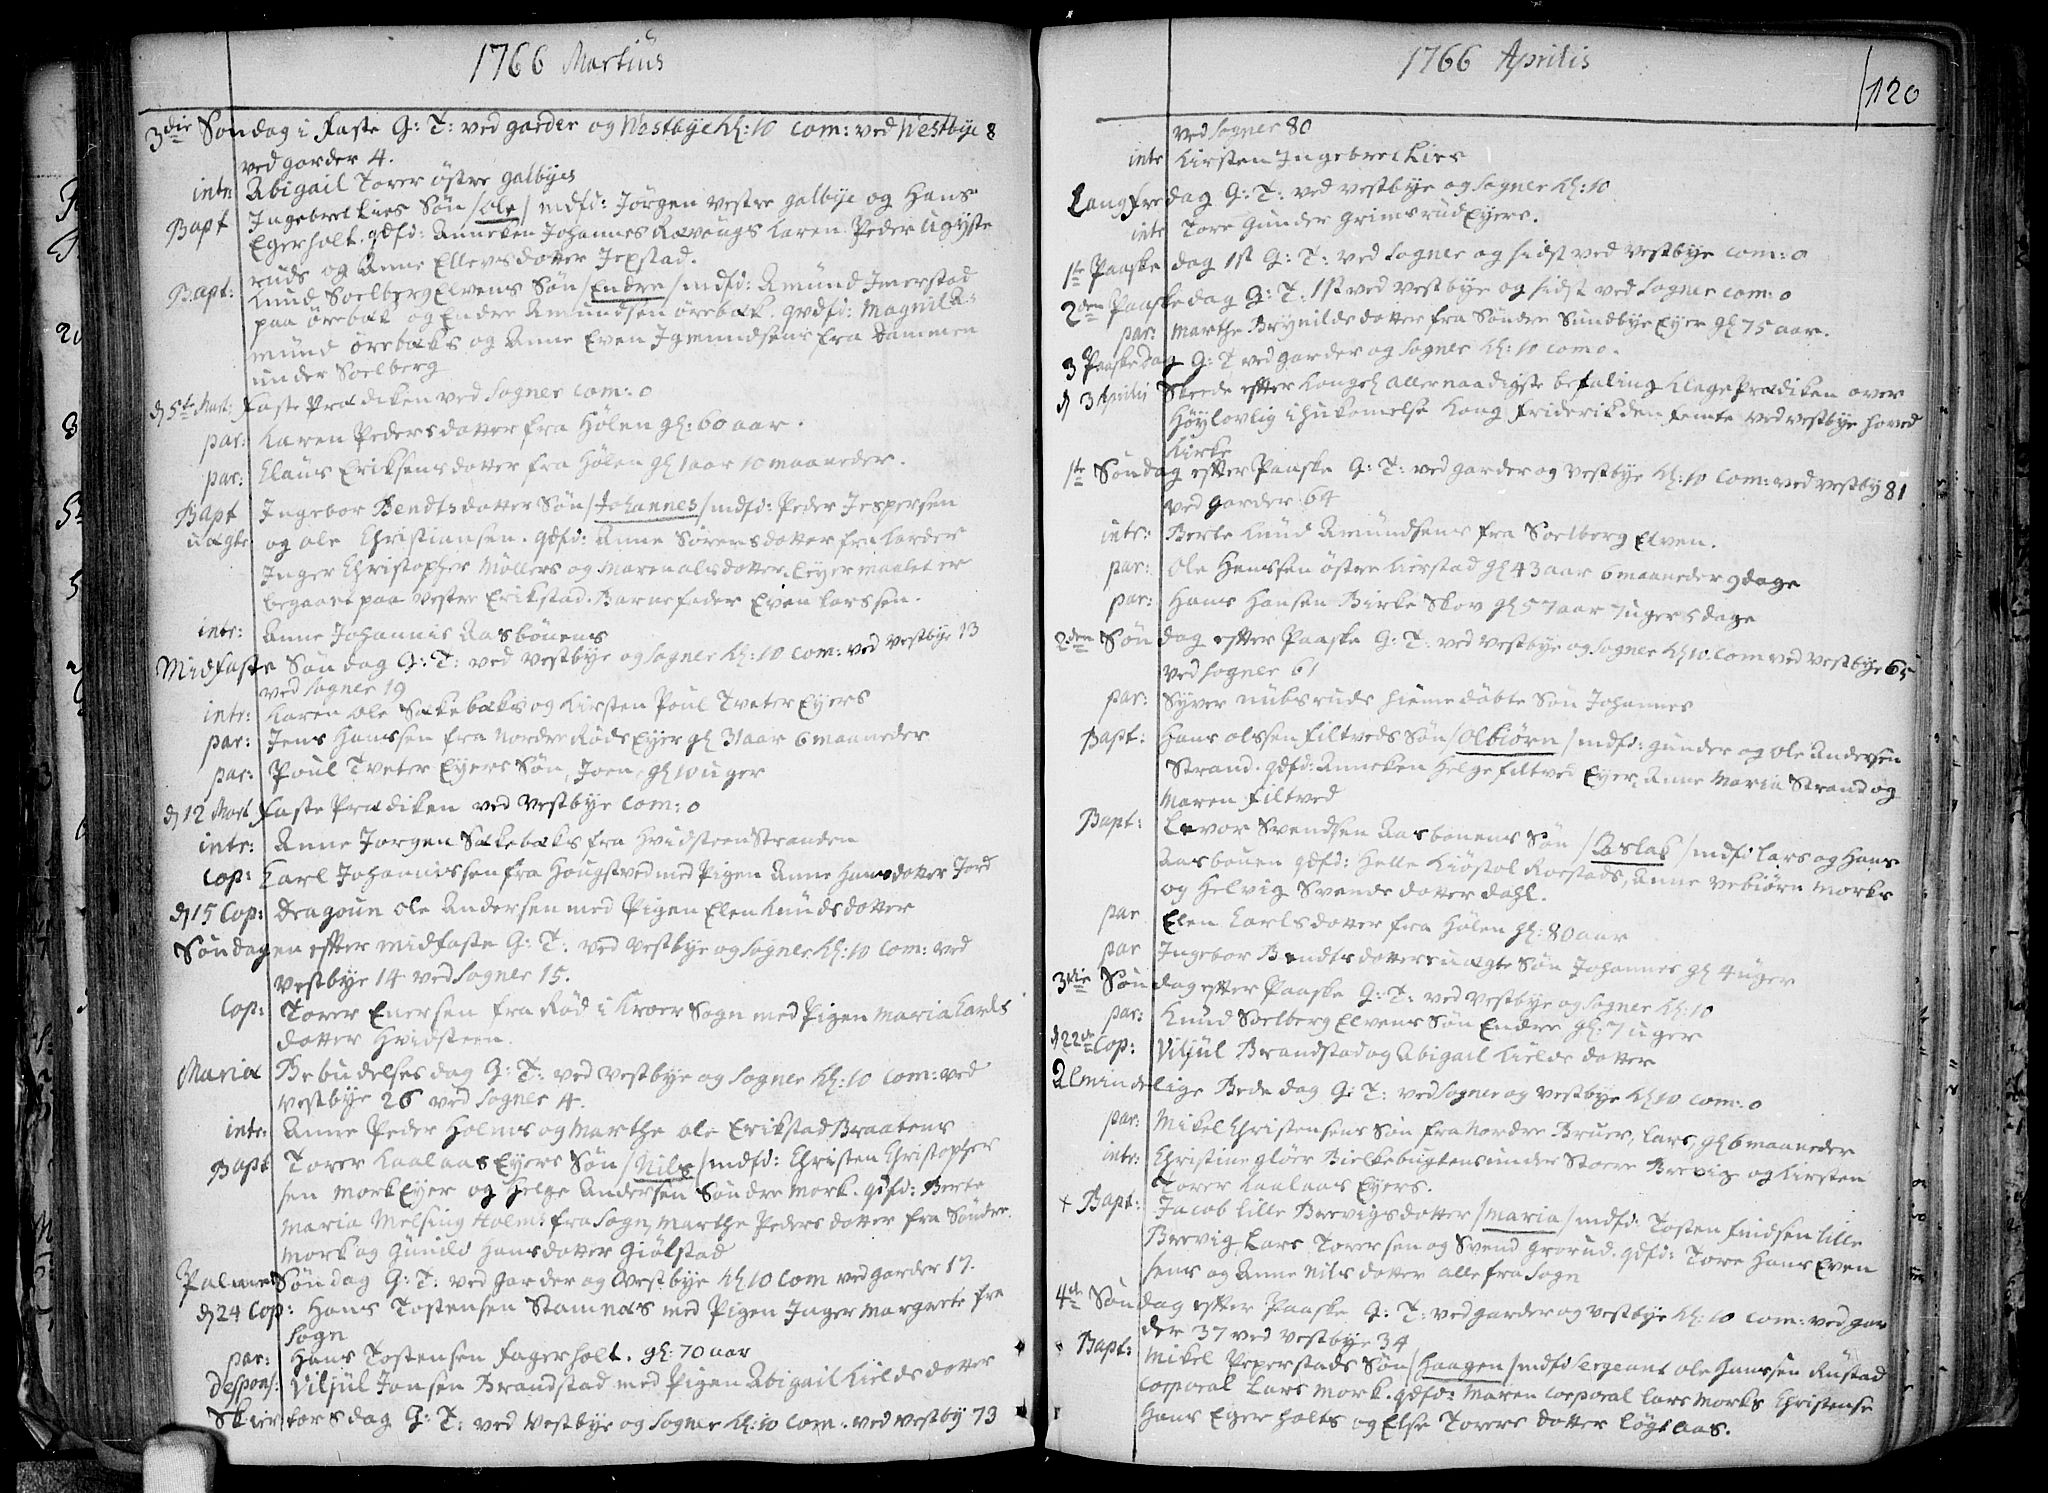 1766 Martius
3die Søndag i Faste G: T: ved garder og Westbye Kl: 10 Com: ved Westbye 8
ved garder 4.
intr Abigail Torer østre galbyes
Bapt Ingebret Lies Søn /Ole/ mdfd: Jørgen vestre galbye og Hans
Egerholt. qdfd: Anneken Johannes Ravougs Karen Peder
ruds og Anne Ellevsdotter Jexstad.
Bapt: Knud Soelberg Elvens Søn /Endre/ mdfd: Amund Imerstad
paa ørebæk og Endre Amundsen ørebæk. qvdfd: Magnil
mund ørebæks og Anne Even Igmundsens fra Dammen
under Soelberg
d 5te Mart: Faste Prædiken ved Sogner Com: 0
par: Karen Pedersdotter fra Hølen gl: 60 aar.
par: Claus Eriksens dotter fra Hølen gl 1 aar 10 maaneder.
Bapt Ingebor Bendtsdotter Søn /Johannes/ mdfd: Peder Jespersen
uægte og Ole Christiansen. qdfd: Anne Sørensdotter fra Larder
Inger Christopher Møllers og Maren Olsdotter. Leyermaalet er
begaaet paa vestre Erikstad. Barnefader Even Larssen.
intr: Anne Johannis Aasbønens
Midfaste Søndag G: T: ved vestbye og Sogner Kl: 10 Com: ved vestbye 13
ved Sogner 19
intr: Karen Ole Sækebæks og Kirsten Poul Tveter Eyers
par: Jens Hanssen fra Nordre Røds Eyer gl 31 aar 6 maaneder
par: Poul Tveter Eyers Søn, Joen, gl 10 uger
d 12 Mart Faste Prædiken ved Vestbye Com: 0
intr: Anne Jørgen Sækebæks fra Hvidsteen Stranden
Cop: Carl Johannissen fra Hougstved med Pigen Anne Hansdotter Jord
d 15 Cop: Dragoun Ole Andersen med Pigen Elen Knudsdotter
Søndagen efter midfaste G: T: ved Vestbye og Sogner Kl: 10 Com: ved
Vestbye 14 ved Sogner 15.
Cop: Torer Enersen fra Rød i Kroer Sogn med Pigen Maria Carls
dotter Hvidsteen.
Mariæ Bebudelses dag G: T: ved Vestbye og Sogner Kl: 10 Com: ved
Vestbye 26 ved Sogner 4.
intr: Anne Peder Holmes og Marthe Ole Erikstad Braatens
Bapt Torer Kaalaas Eyers Søn /Nils/ mdfd: Christen Christopher
sen Mork Eyer og Helge Andersen Søndre Mork. qdfd: Berte
Maria Melsing Holms fra Sogn, Marthe Pedersdotter fra Søndre
Mork og Gunild Hansdotter Giølstad
Palme Søndag G: T: ved garder og Vestbye Kl 10 Com ved garder 17.
d 24 Cop: Hans Tostensen Stamnæs med Pigen Inger Margrete fra
Sogn
par: Hans Tostensen Fagerholt. gl: 70 aar
Despons: Viljul Jonsen Brandstad med Pigen Abigail Kieldsdotter
Skiertorsdag G: T: ved Vestbye og Sogner Kl: 10 Com: ved Vestby 73
1766 Aprilis
120
ved Sogner 80
intr Kirsten Ingebret Lies
Langfredag G: T: ved Vestbye og Sogner Kl: 10
intr Tore Gunder Grimsrud Eyers.
1te Paaske dag 1st G: T: ved Sogner og sidst ved Vestbye Com: 0
2den Paaskedag G: T: 1st ved Vestbye og sidst ved Sogner Com: 0
par: Marthe Brynildsdotter fra Søndre Sundbye Eyer gl 75 aar.
3 Paaskedag G: T ved garder og Sogner Kl: 10 Com 0.
d 3 Aprilis Skeede efter Kongel Allernaadigste befaling Klage Prædiken over
Høylovlig ihukomelse Kong Friderik den femte ved vestbye hoved
Kirke
1te Søndag efter Paaske G: T: ved garder og Vestbye Kl: 10 Com: ved vestby 81
ved Garder 64
intr: Berte Knud Amundsens fra Soelberg Elven.
par: Ole Hanssen østre Kirstad gl 43 aar 6 maaneder 9 dage
par: Hans Hansen Birke Skov gl 57 aar 7 uger 5 dage
2den Søndag efter Paaske G: T: ved Vestbye og Sogner Kl 10 Com ved Vestbye 65
ved Sogner 61
par: Syver Nubsruds hiemedøbte Søn Johannes
Bapt: Hans Olssen Filtveds Søn /Olbiørn/ mdfd: Gunder og Ole Andersen
Strand. qdfd: Anneken Helge Filtved Eyer, Anne Maria Strand og
Maren Filtved
Bapt: Levor Svendsen Aasbønens Søn /Aslak/ mdfd Lars og Hans
Aasbøuen qdfd: Helle Kiøstol Roestads, Anne Vebiørn Morks
og Helvig Svendsdotter Dahl.
par Elen Carlsdotter fra Hølen gl: 80 aar
par Ingebor Bendtsdotters uægte Søn Johannes gl 4 uger
3die Søndag efter Paaske G: T: ved Vestbye og Sogner Kl: 10
par: Knud Soelberg Elvens Søn Endre gl: 7 uger
d 22de Cop: Viljul Brandstad og Abigail Kieldsdotter
Almindelige Bede dag G: T: ved Sogner og vestbye Kl 10 Com: 0
par: Mikel Christensens Søn fra Nordre Bruer, Lars, gl 6 maaneder
intr: Christine Gløer Bielkebugtens under Støere Brevig og Kirsten
Torer Kaalaas Eyers.
+ Bapt: Jacob Lille Brevigs dotter /Maria/ mdfd: Tosten Findsen Lille
Brevig, Lars Torersen og Svend Grorud. qdfd: Tore Hans Even
sens og Anne Nilsdotter alle fra Sogn
4de Søndag efter Paaske G: T: ved garder og Vestbye Kl: 10 Com: ved gar
der 37 ved Vestbye 34
Bapt: Mikel Peperstads Søn /Haagen/ mdfd Sergeant Ole Hanssen Rustad
Corporal Lars Mork. qdfd: Maren Corporal Lars Morks Christense
Hans Egerholts og Else Torersdotter Løglaas.